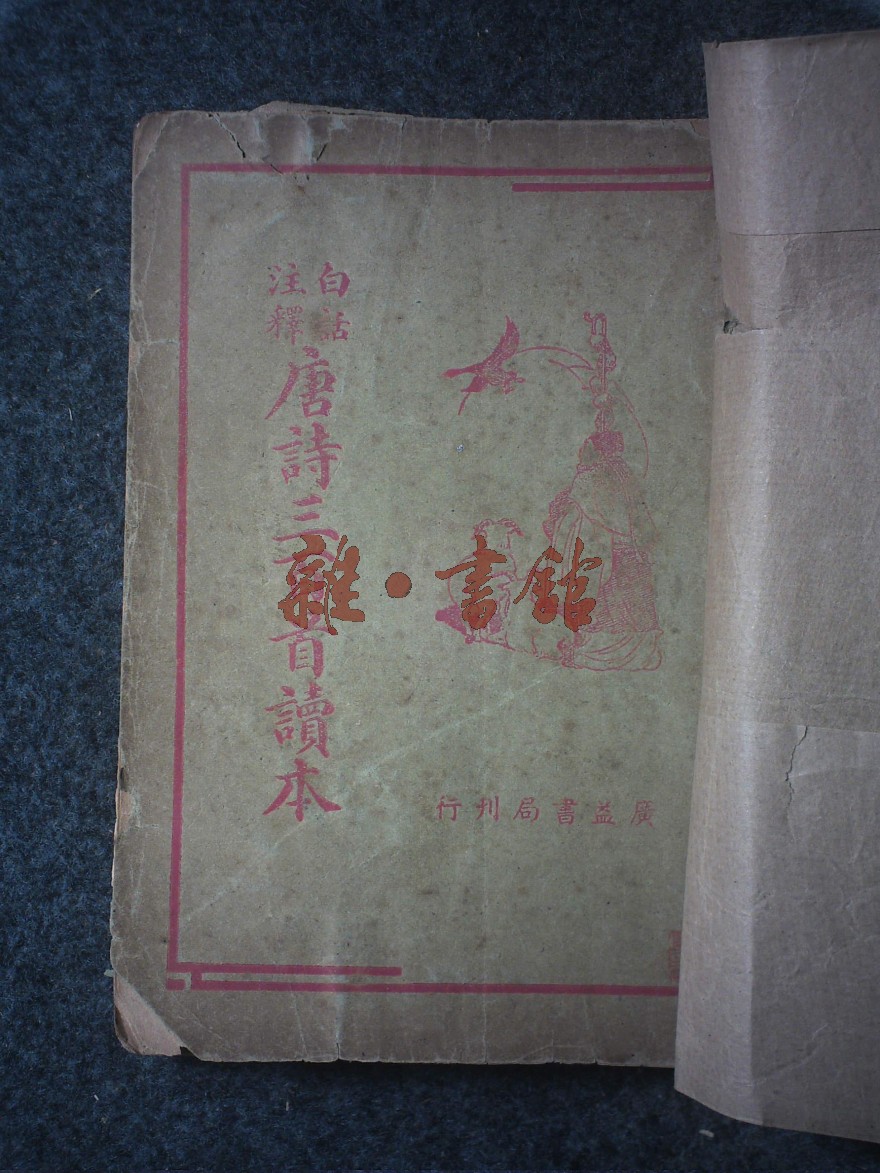 白話
注釋
唐詩三百首讀本
廣益書局刊行
雜•書館